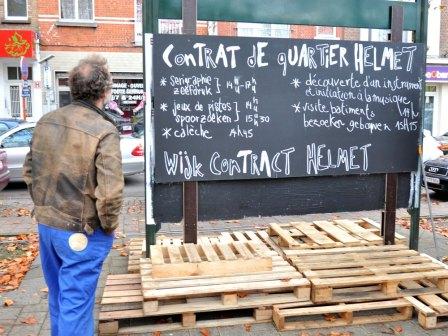 ContRAt de quARtieR HELMET
* SeRigRaphie 14H-17H
zeefdRuk
* jeux de pistes 14H
spooRzoeken 15H30
* calèche 14H45
* découverte d'un instrument
et initiation à la musique
14H
* visite batiments
bezoeken gebouwen 15H15
Wijk ContRACT HELMET